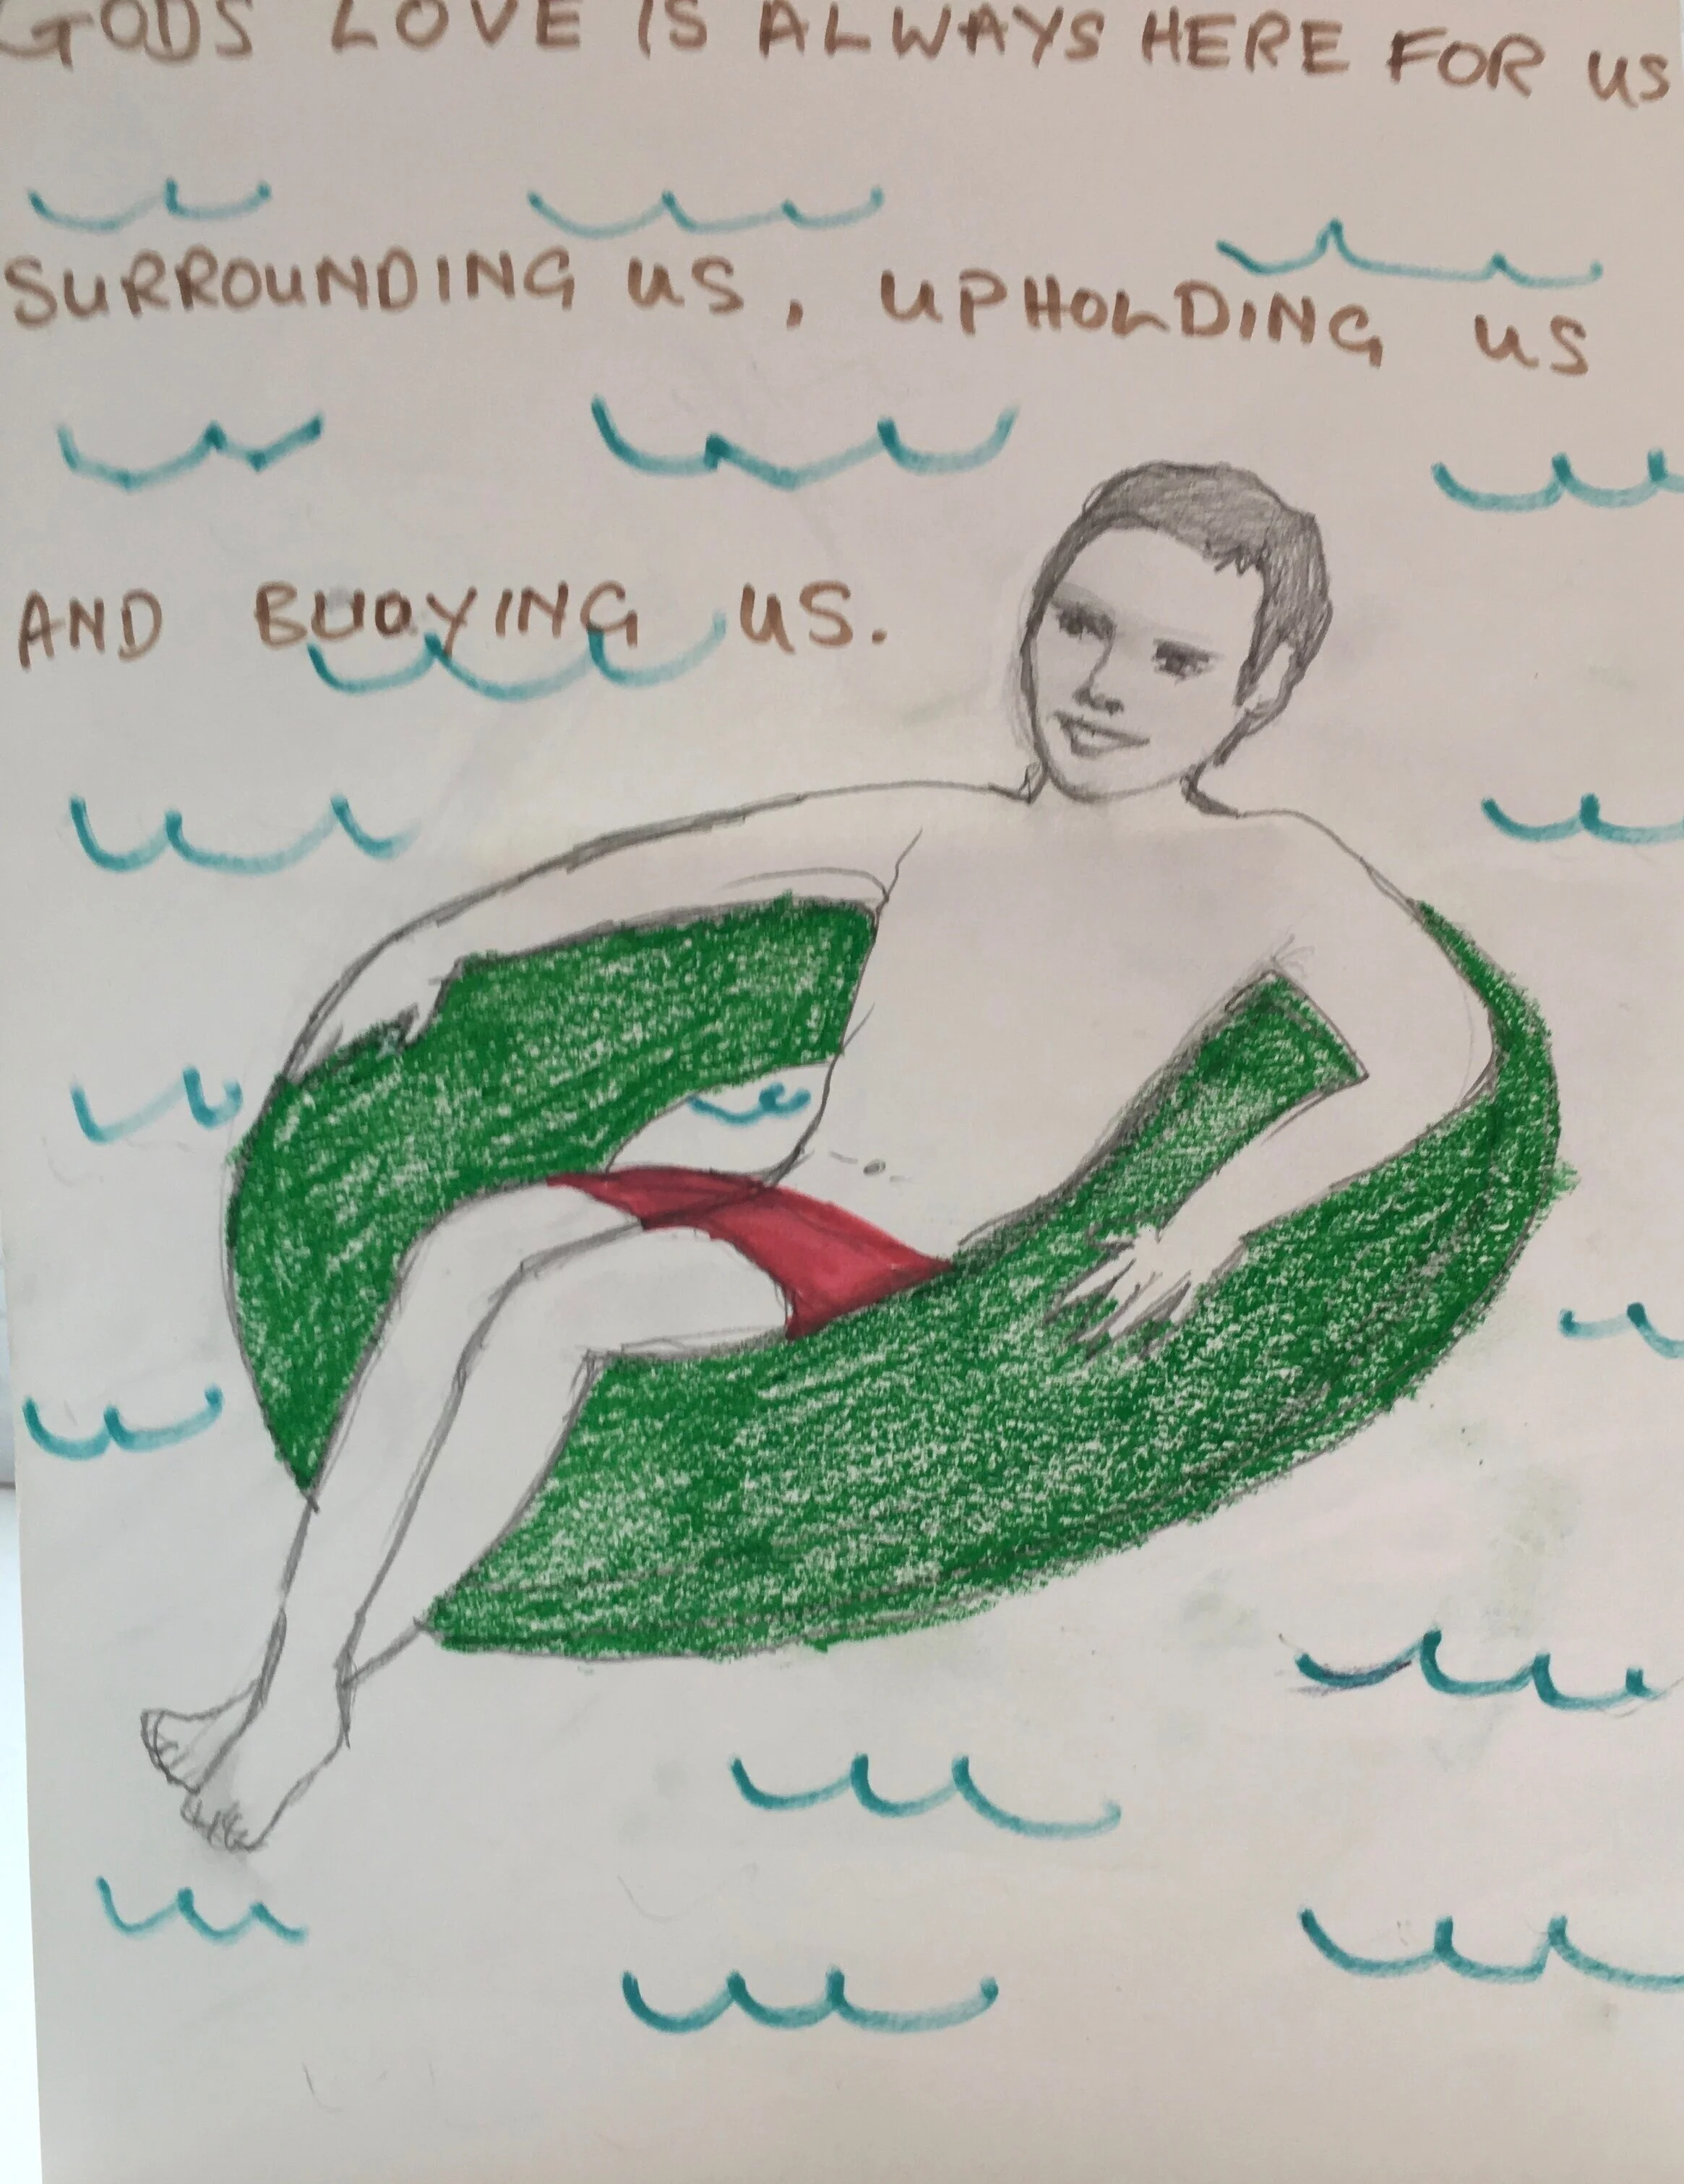 GODS LOVE IS ALWAYS HERE FOR US
SURROUNDING US, UPHOLDING US
AND BUOYING US.